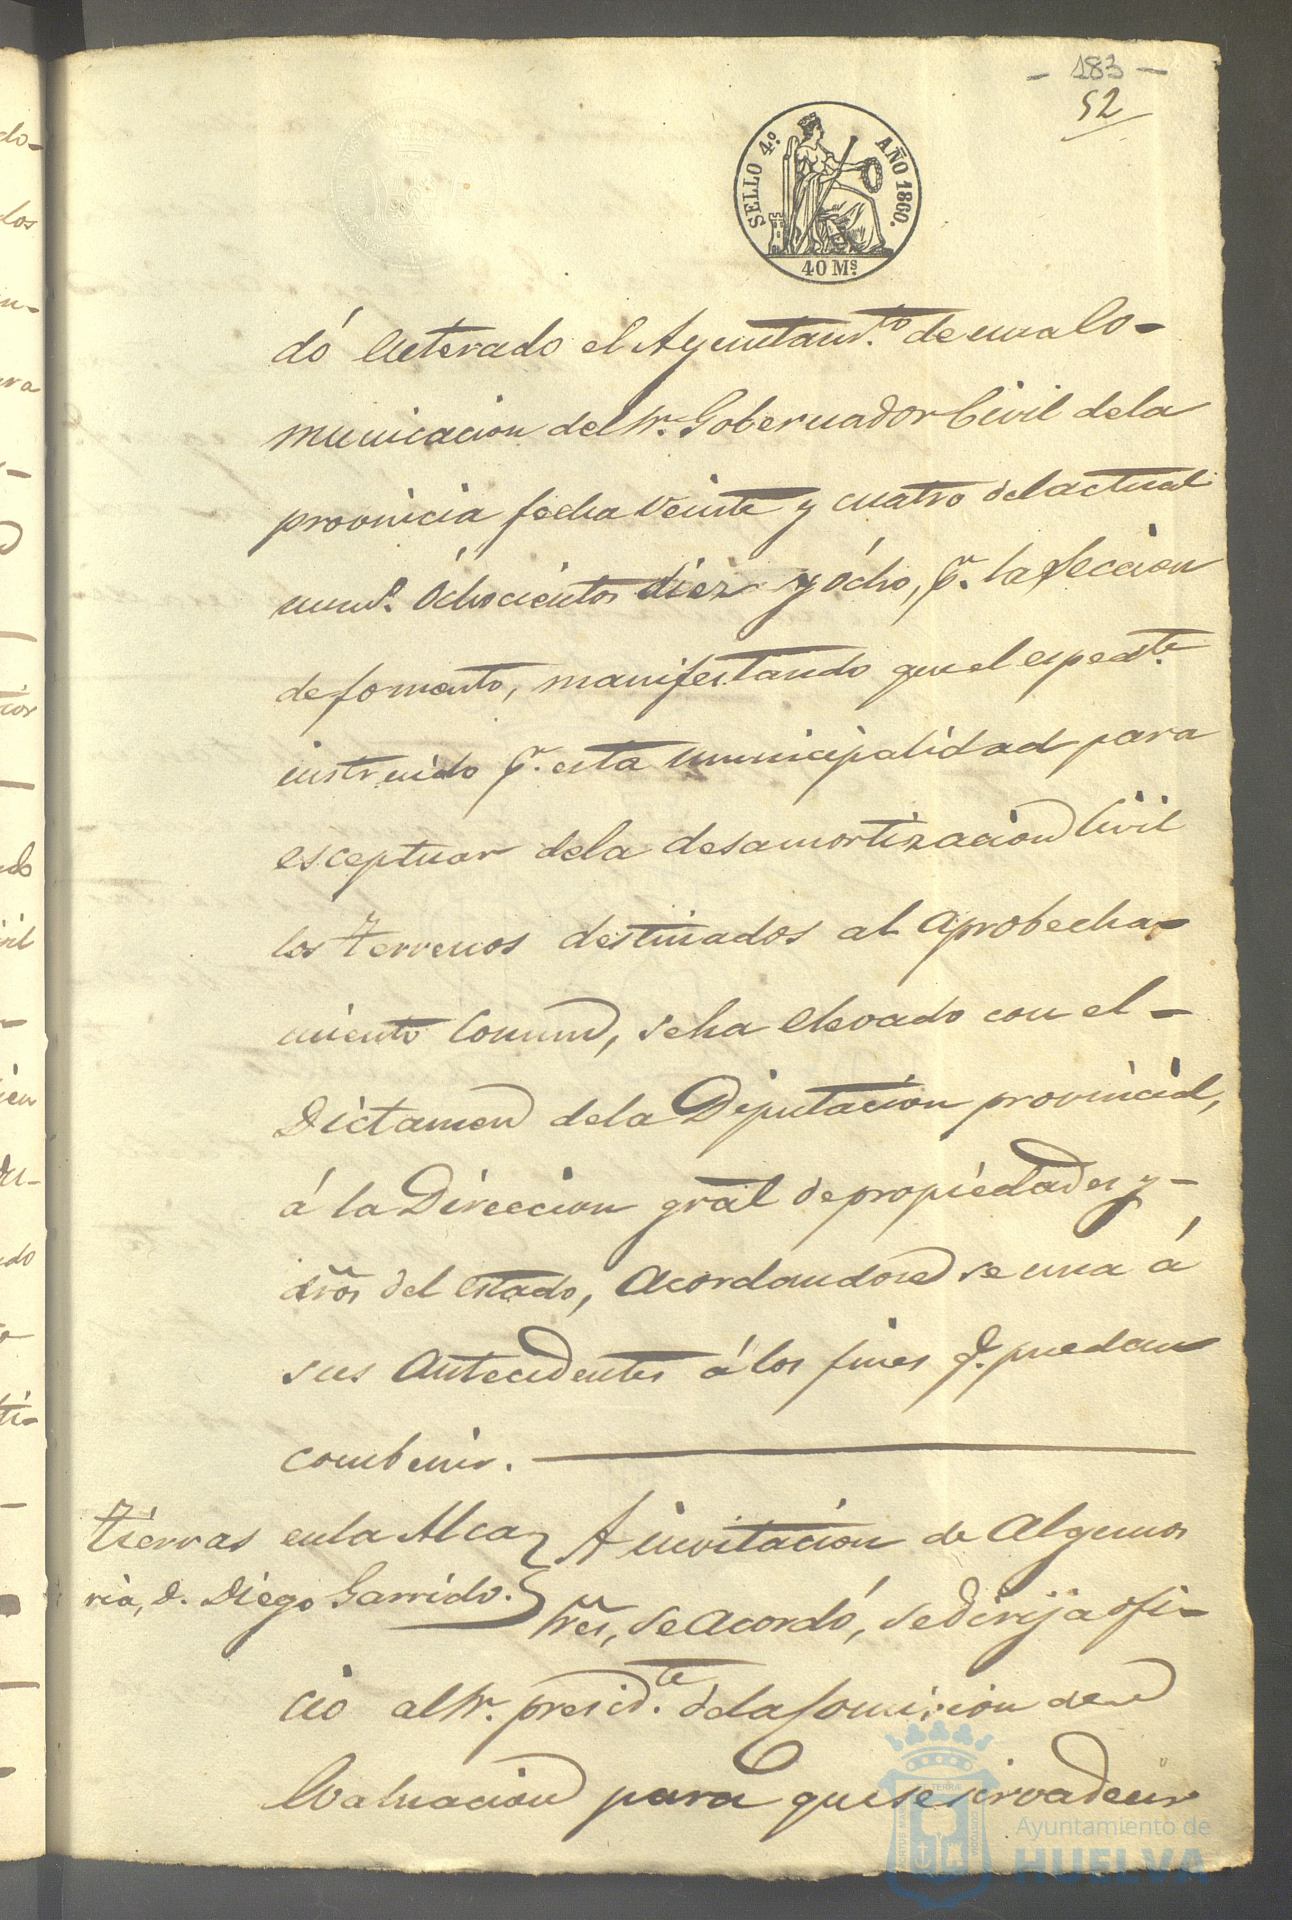 - 183 -
52
SELLO 4.º AÑO 1860.
40 Ms.
dó enterado el Ayuntam.to de una Co-
municacion del Sr. Gobernador Civil de la
provincia fecha veinte y cuatro del actual
num.º Ochocientos diez y ócho, p.r la Seccion
de fomento, manifestando que el exped.te
instruido p.r esta municipalidad para
esceptuar de la desamortizacion Civil
los terrenos destinados al aprobecha-
miento Comun, se ha elevado con el -
Dictamen de la Diputacion provincial,
á la Direccion gral de propiedades y -
dros del Estado, Acordandose se una á
sus Antecedentes á los fines q. puedan
combenir.
Tierras en la Alca
ria, D. Diego Garrido.
A invitacion de Algunos
Sres, se Acordó, se dirija ofi-
cio al Sr. presid.te de la Comision de
Evaluacion para que se sirva decir
Ayuntamiento de
HUELVA